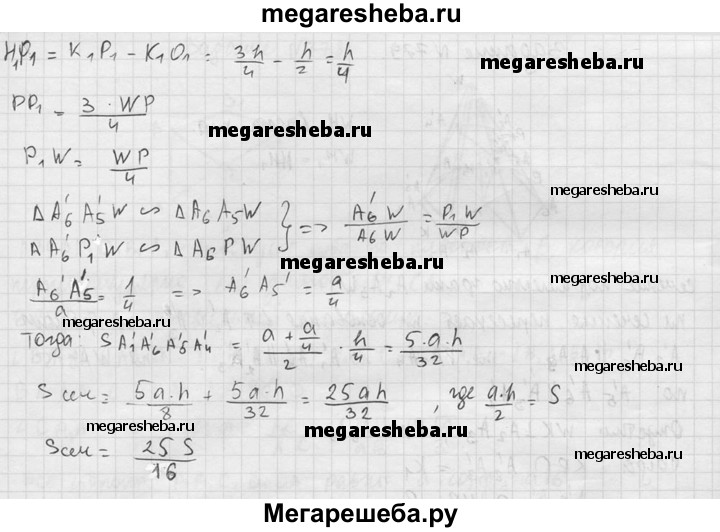 megaresheba.ru
H₁P₁ = K₁P₁ - K₁O₁ = 3h/4 - h/2 = h/4
megaresheba.ru
PP₁ = 3·WP/4
megaresheba.ru
P₁W = WP/4
megaresheba.ru
ΔA₆'A₅'W ∽ ΔA₆A₅W } => A₆'W/A₆W = P₁W/WP
ΔA₆'P₁W ∽ ΔA₆PW
megaresheba.ru
A₆'A₅'/a = 1/4 => A₆'A₅' = a/4
megaresheba.ru
megaresheba.ru
Тогда: S A₁'A₆'A₅'A₄' = (a + a/4)/2 · h/4 = 5·a·h/32
megaresheba.ru
Sсеч = 5a·h/8 + 5a·h/32 = 25ah/32, где a·h/2 = S
megaresheba.ru
megaresheba.ru
Sсеч = 25S/16
megaresheba.ru
Мегарешеба.ру